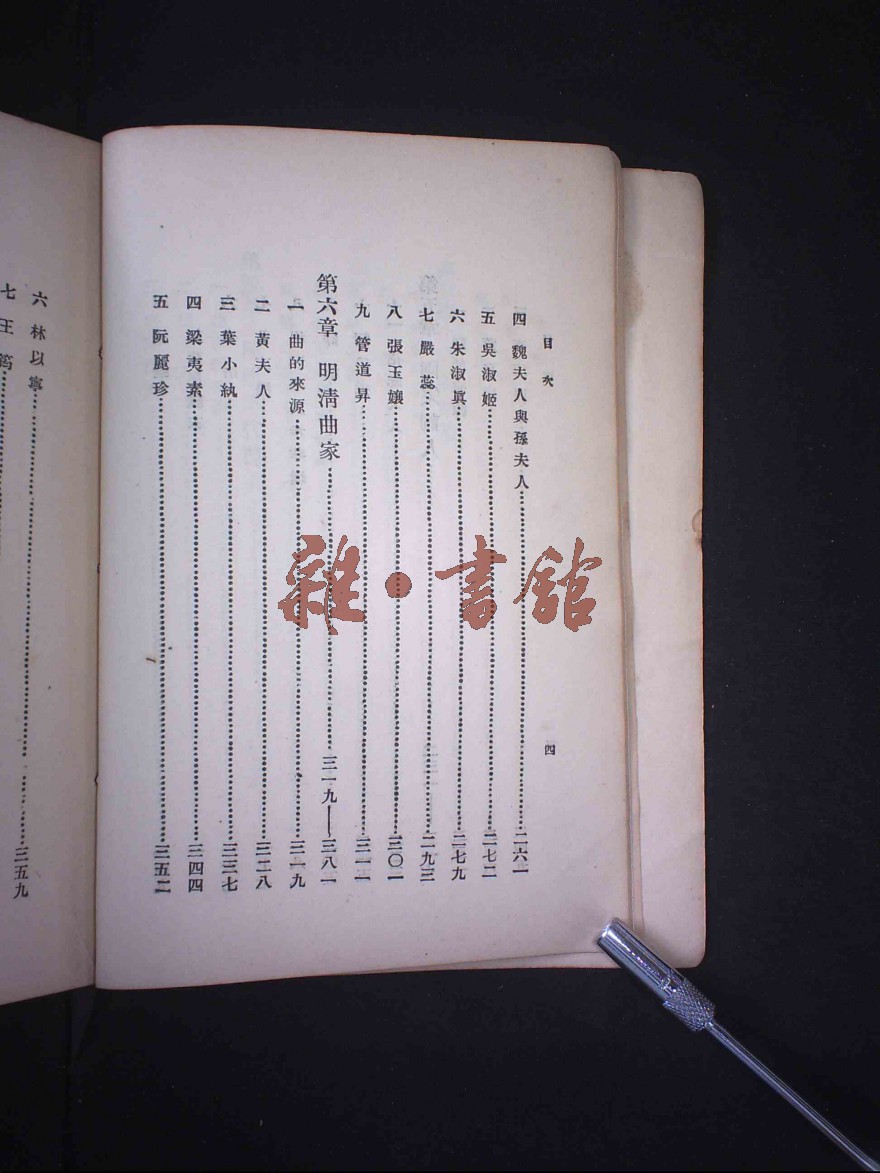 目次
四
四 魏夫人與孫夫人……二六一
五 吳淑姬……二七二
六 朱淑眞……二七九
七 嚴蕊……二九三
八 張玉孃……三〇一
九 管道昇……三一一
第六章 明淸曲家……三一九——三八一
一 曲的來源……三一九
二 黃夫人……三二八
三 葉小紈……三三七
四 梁夷素……三四四
五 阮麗珍……三五二
六 林以寧……三五九
七 王筠……
雜·書館